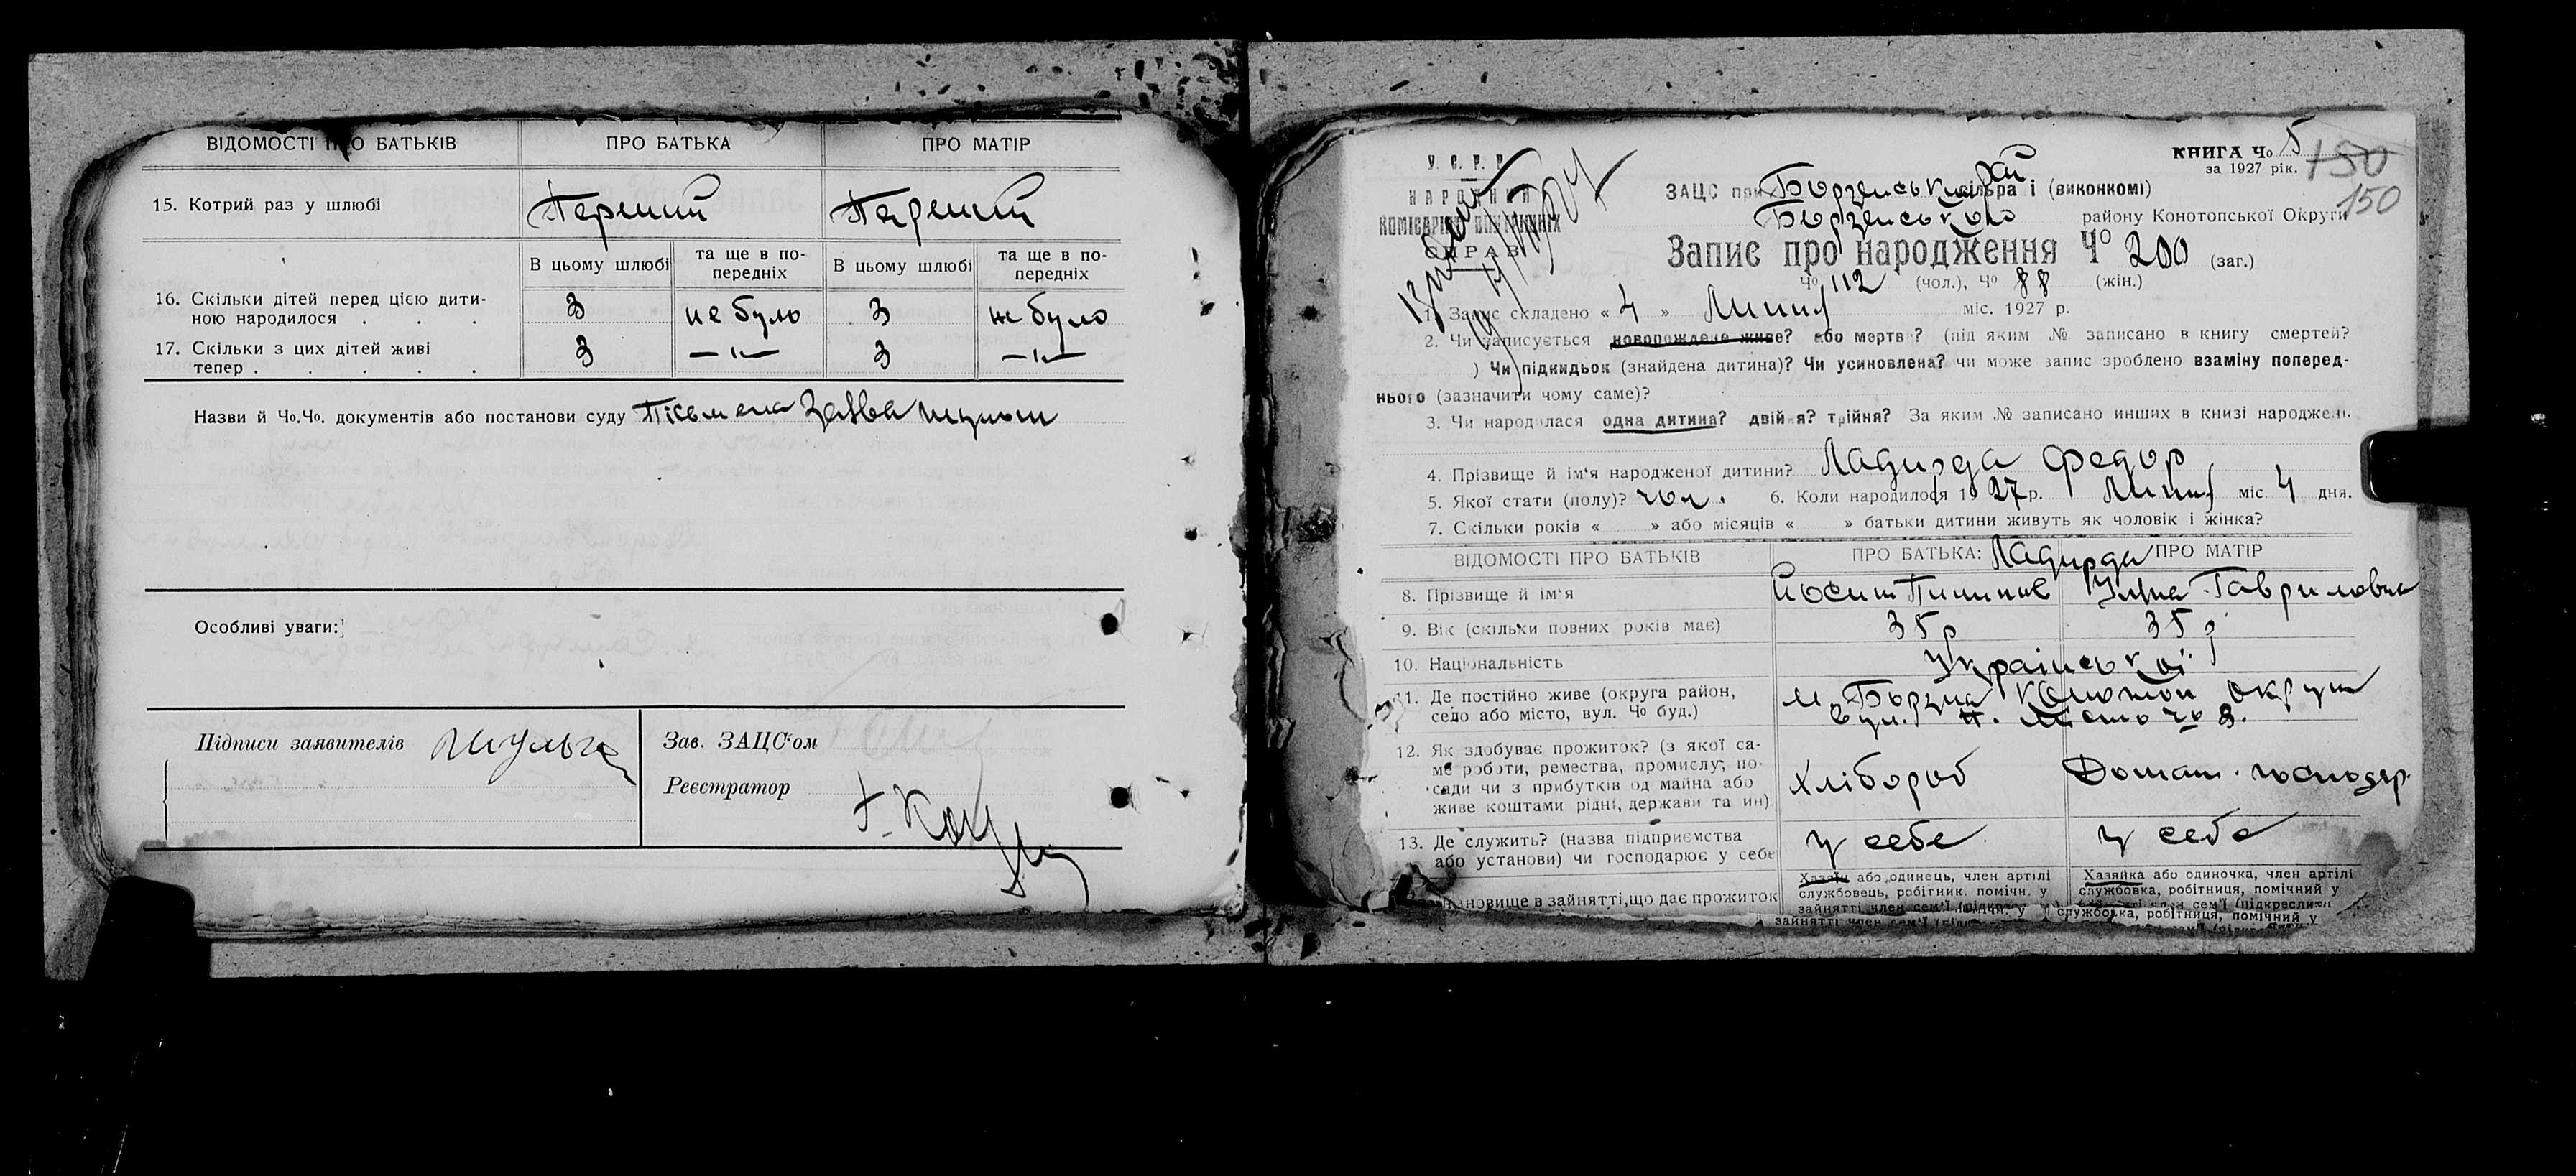 ВІДОМОСТІ ПРО БАТЬКІВ ПРО БАТЬКА ПРО МАТІР
15. Котрий раз у шлюбі Перший Перший
В цьому шлюбі та ще в по-передніх В цьому шлюбі та ще в по-передніх
16. Скільки дітей перед цією дити-
ною народилося . . . 3 не було 3 не було
17. Скільки з цих дітей живі
тепер . . . . . 3 —"— 3 —"—
Назви й Чо.Чо. документів або постанови суду Пісьмена Заява
Особливі уваги:
Підписи заявителів Шульга
Зав. ЗАЦС'ом
Реєстратор
КНИГА Чо 5
за 1927 рік. 150
150
У. С. Р. Р.
НАРОДНИЙ
КОМІСАРІЯТ ВНУТРІШНІХ
СПРАВ
ЗАЦС при Борзенській міськраі (виконкомі)
Борзенського району Конотопської Округи
Запис про народження Чо 200 (заг.)
Чо 112 (чол.), Чо 88 (жін.)
1. Запис складено « 4 » Липня міс. 1927 р.
2. Чи записується новорождене живе? або мертве? (під яким № записано в книгу смертей?
) Чи підкидьок (знайдена дитина)? Чи усиновлена? чи може запис зроблено взаміну поперед-
нього (зазначити чому саме)?
3. Чи народилася одна дитина? двійня? трійня? За яким № записано инших в книзі народжень.
4. Прізвище й ім'я народженої дитини? Ладирда Федор
5. Якої стати (полу)? чол. 6. Коли народилося 1927 р. Липня міс. 4 дня.
7. Скільки років « » або місяців « » батьки дитини живуть як чоловік і жінка?
ВІДОМОСТІ ПРО БАТЬКІВ ПРО БАТЬКА: Ладирда ПРО МАТІР
8. Прізвище й ім'я Йосип Уляна Гавриловна
9. Вік (скільки повних років має) 35 р 35 р
10. Національність Української
11. Де постійно живе (округа район,
село або місто, вул. Чо буд.) м. Борзна Конотоп округи
вул.
12. Як здобуває прожиток? (з якої са-
ме роботи, ремества, промислу, по-
сади чи з прибутків од майна або
живе коштами рідні, держави та ин). Хлібороб Домаш. господар.
13. Де служить? (назва підприємства
або установи) чи господарює у себе у себе у себе
становище в зайнятті, що дає прожиток
Хазяїн або одинець, член артілі
службовець, робітник, помічн. у
зайнятті член сем'ї
Хазяйка або одиночка, член артілі
службовка, робітниця, помічний у
сем'ї (підкреслити
зайнятті член сем'ї
службовка, робітниця, помічний у